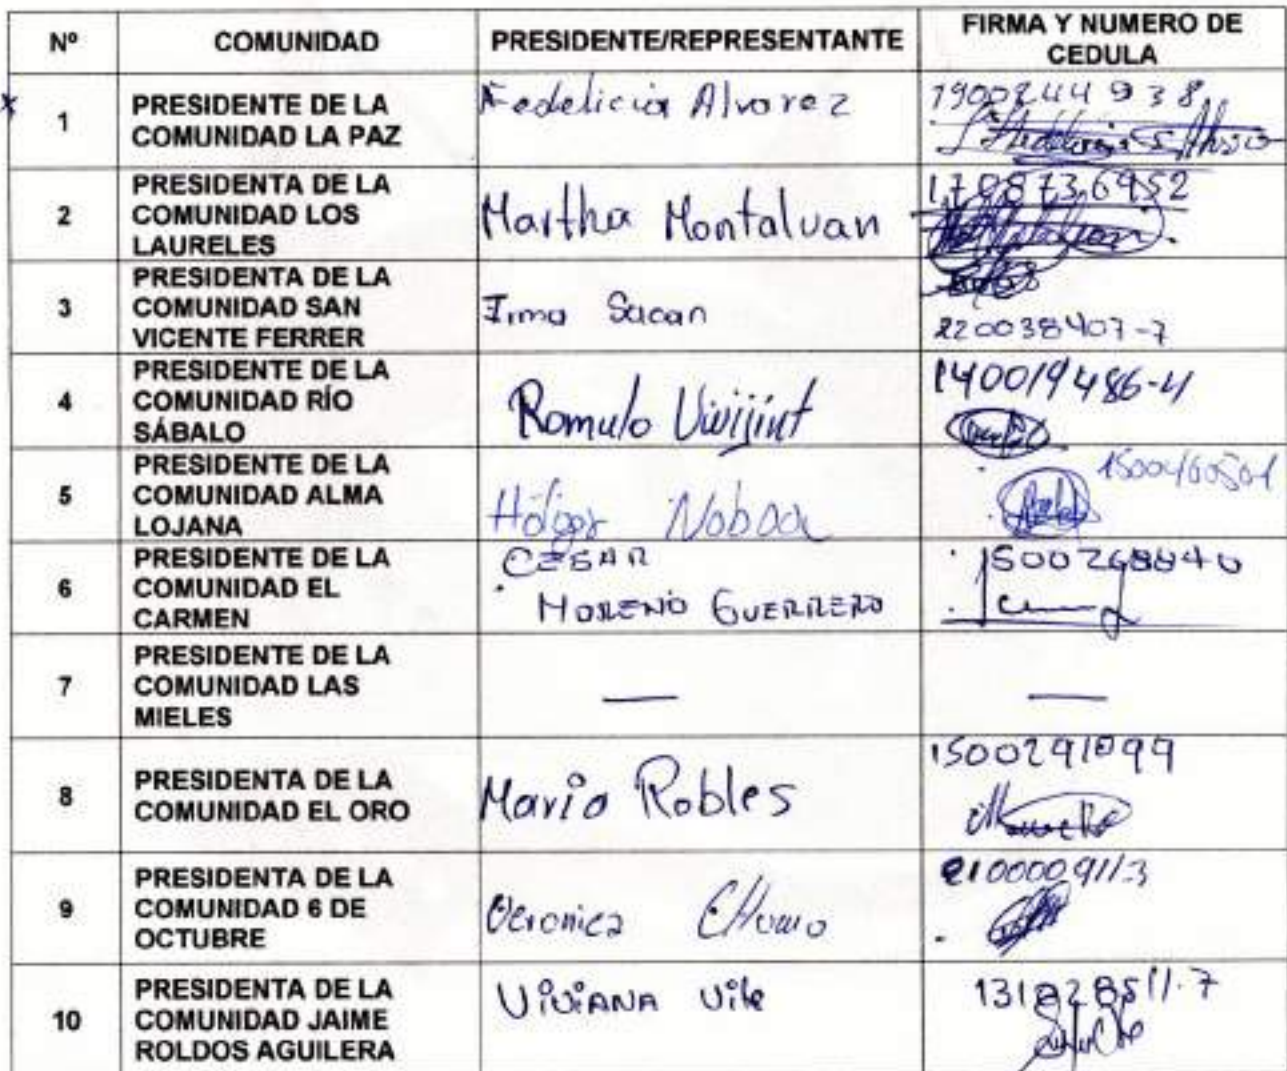 Nº COMUNIDAD PRESIDENTE/REPRESENTANTE FIRMA Y NUMERO DE
CEDULA
1 PRESIDENTE DE LA
COMUNIDAD LA PAZ
Fedelicia Alvarez
1900244938
2 PRESIDENTA DE LA
COMUNIDAD LOS
LAURELES
Martha Montalvan
3 PRESIDENTA DE LA
COMUNIDAD SAN
VICENTE FERRER
Irma Sacan
220038407-7
4 PRESIDENTE DE LA
COMUNIDAD RÍO
SÁBALO
Romulo
140019486-4
5 PRESIDENTE DE LA
COMUNIDAD ALMA
LOJANA
Holger Noboa
6 PRESIDENTE DE LA
COMUNIDAD EL
CARMEN
CESAR
MORENO GUERRERO
7 PRESIDENTE DE LA
COMUNIDAD LAS
MIELES
—
—
8 PRESIDENTA DE LA
COMUNIDAD EL ORO
Robles
1500291099
9 PRESIDENTA DE LA
COMUNIDAD 6 DE
OCTUBRE
Veronica
10 PRESIDENTA DE LA
COMUNIDAD JAIME
ROLDOS AGUILERA
ViviANA Vile